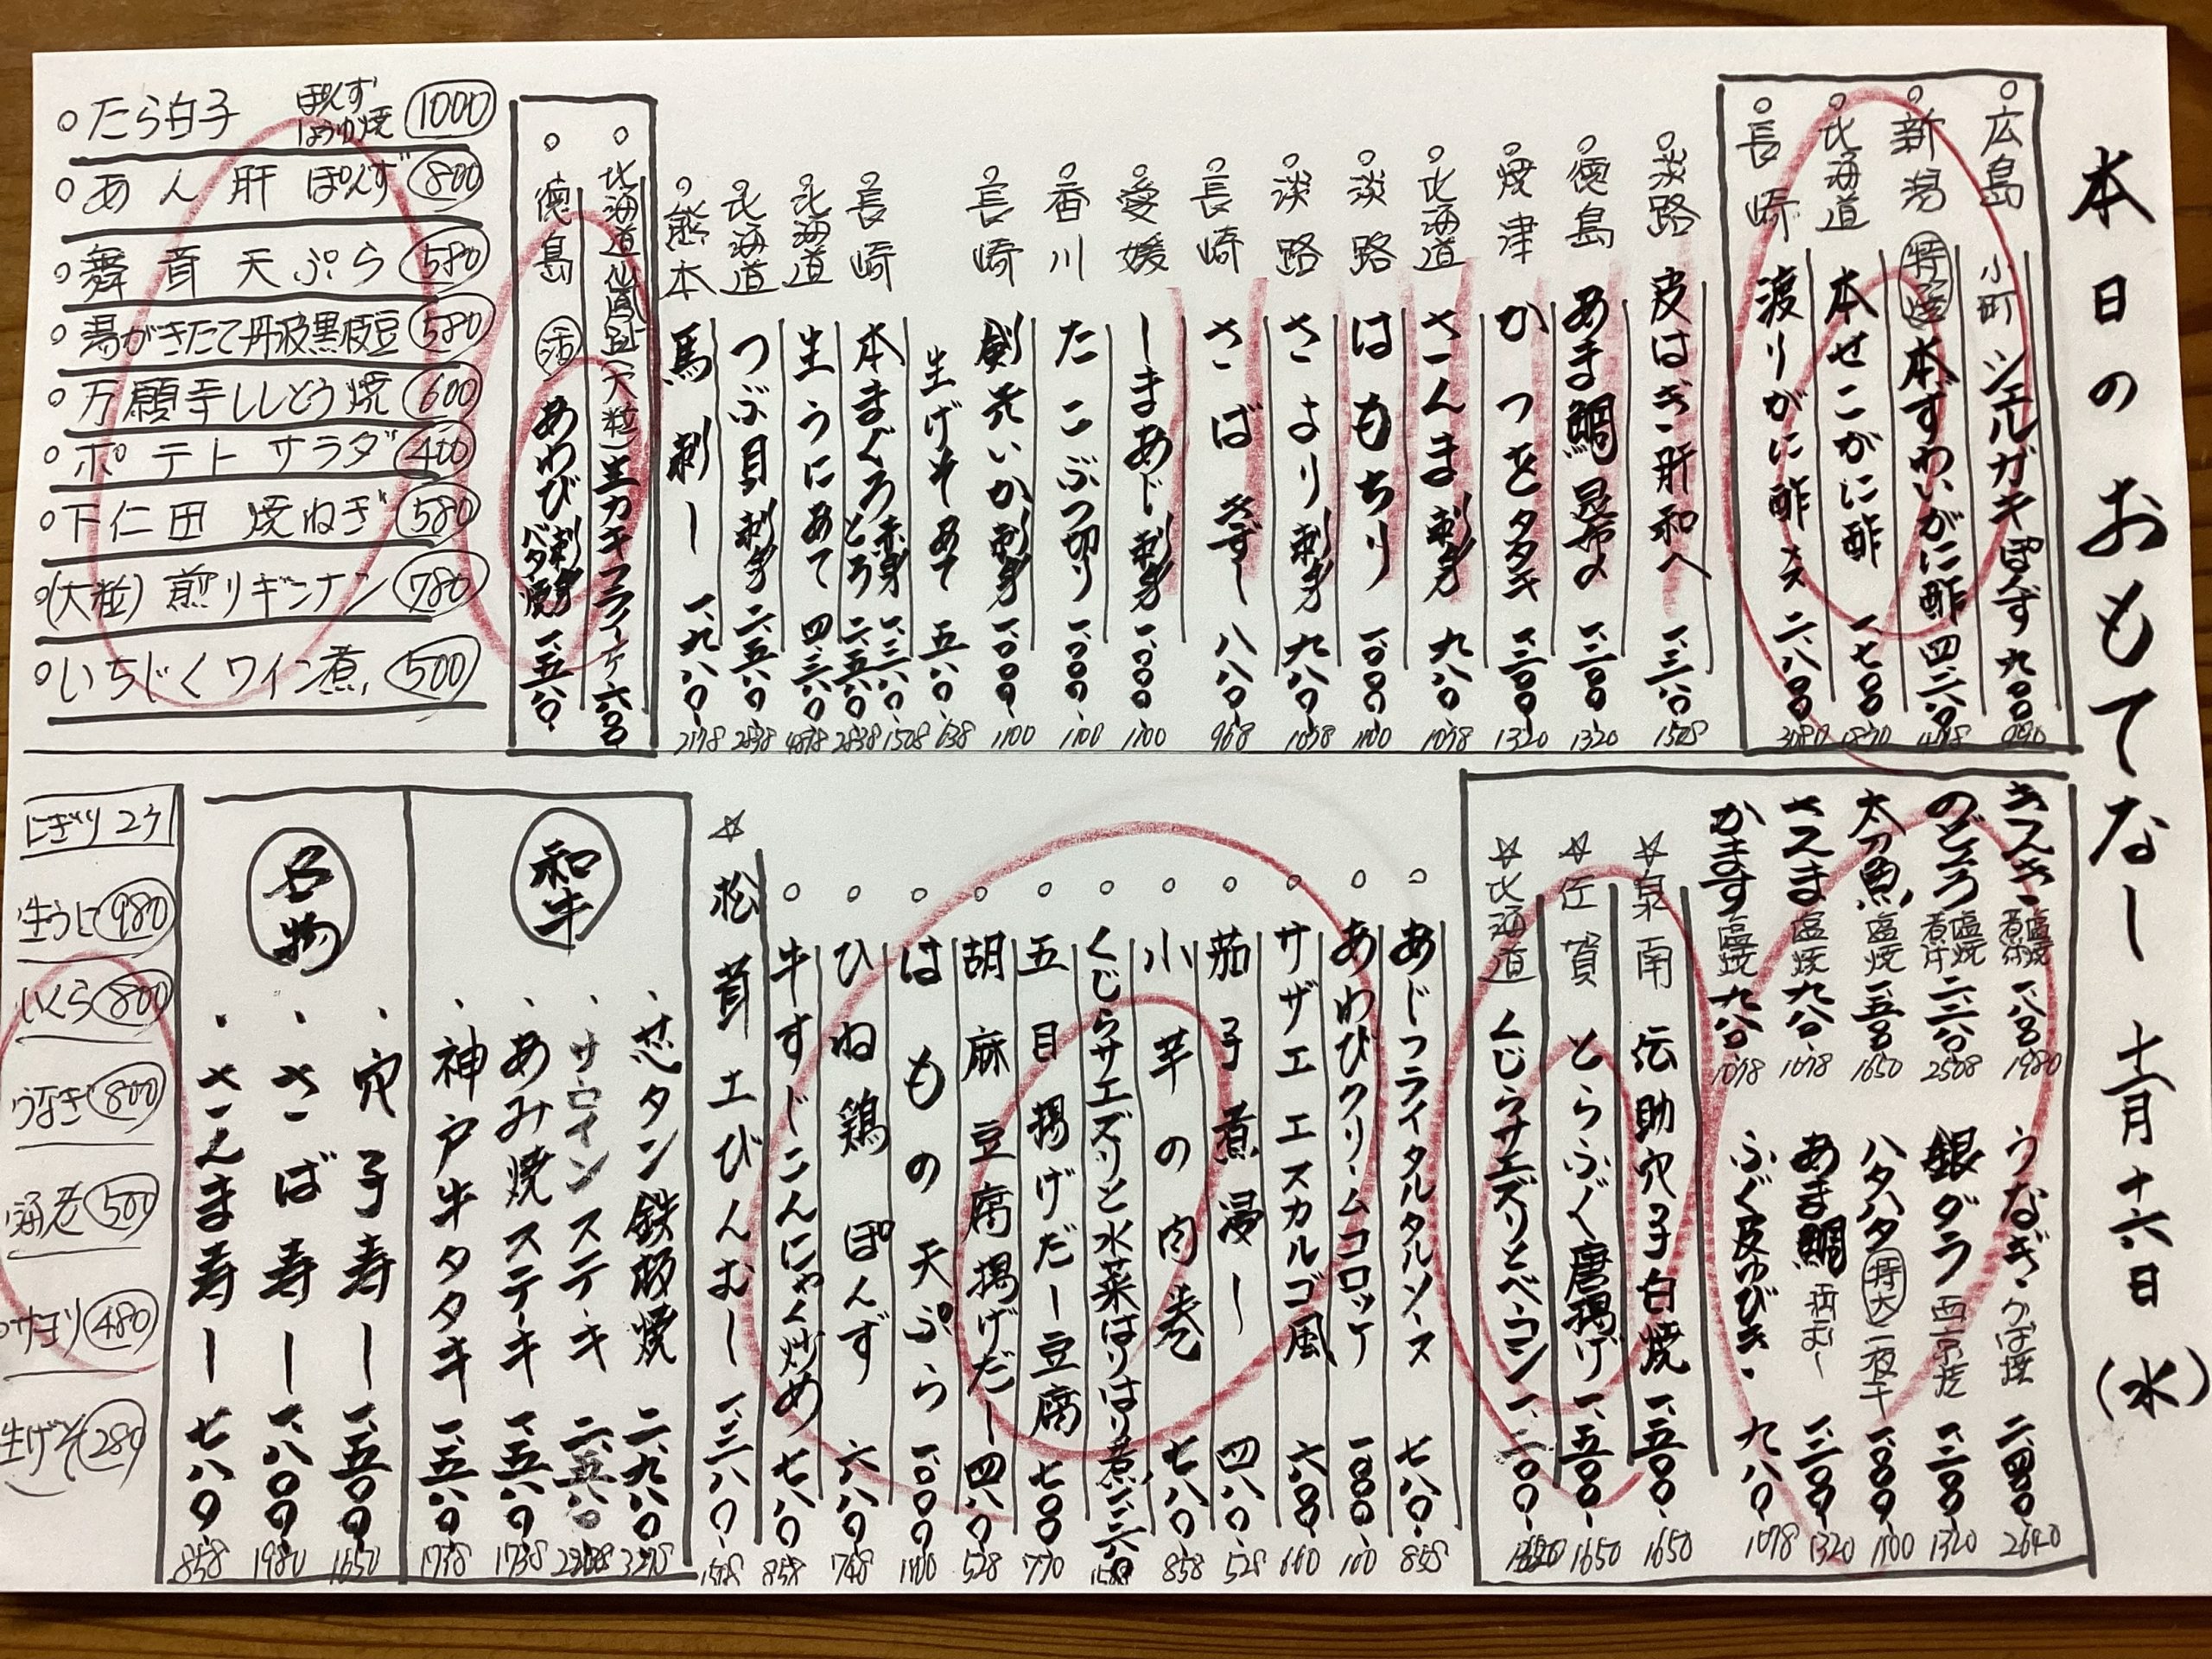 本日のおもてなし 十一月十六日(水)
広島 小町 シェルガキぽんず 九〇〇 990
新潟 特選 本ずわいがに酢 四、二六〇
北海道 本せこがに酢 一、七〇〇 1870
長崎 渡りがに酢 メス 二、八〇〇 3080
淡路 皮はぎ肝和へ 一、三八〇 1508
徳島 あま鯛昆布〆 一、二〇〇 1320
焼津 かつをタタキ 一、二〇〇 1320
北海道 さんま刺身 九八〇 1078
淡路 はもちり 一、〇〇〇 1100
淡路 さより刺身 九八〇 1078
長崎 さばきずし 八八〇 968
愛媛 しまあじ刺身 一、〇〇〇 1100
香川 たこぶつ切り 一、〇〇〇 1100
長崎 剣先いか刺身 一、〇〇〇 1100
生げそあて 五八〇 638
長崎 本まぐろ 赤身 一、三八〇 1508
とろ 二、五八〇 2838
北海道 生うにあて 四、三八〇 4818
北海道 つぶ貝刺身 二、五八〇 2838
熊本 馬刺し 一、九八〇 2178
北海道仙鳳趾(大粒)生カキフライ 一ケ 六〇〇
徳島 活 あわび 刺身 バタ焼 一、五八〇
たら白子 ぽんず しょうゆ焼 1000
あん肝 ぽんず 800
舞茸天ぷら 580
湯がきたて丹波黒枝豆 580
万願寺ししとう焼 600
ポテトサラダ 400
下仁田 焼ねぎ 580
(大粒) 煎りギンナン 780
いちじくワイン煮 500
きんき 塩焼 煮付 一、八〇〇 1980
のどぐろ 塩焼 煮付 二、二八〇 2508
太刀魚 塩焼 一、五〇〇 1650
さんま 塩焼 九八〇 1078
かます 塩焼 九八〇 1078
うなぎ かば焼 二、四〇〇 2640
銀ダラ 西京焼 一、二〇〇 1320
ハタハタ 特大 一夜干 一、〇〇〇 1100
あま鯛 酒むし 一、二〇〇 1320
ふぐ皮ゆびき 九八〇 1078
☆泉南 伝助穴子白焼 一、五〇〇 1650
☆佐賀 とらふぐ唐揚げ 一、五〇〇 1650
☆北海道 くじらサエズリとベーコン
あじフライタルタルソース 七八〇 858
あわびクリームコロッケ
サザエエスカルゴ風 六〇〇 660
茄子煮浸し 四八〇 528
小芋の肉巻 七八〇 858
くじらサエズリと水菜はりはり煮
五目揚げだし豆腐 七〇〇 770
胡麻豆腐揚げだし 四八〇 528
はもの天ぷら 一、〇〇〇 1100
ひね鶏ぽんず 六八〇 748
牛すじこんにゃく炒め 七八〇 858
☆松茸土びんむし 一、三八〇 1518
和牛
芯タン鉄板焼 二、九八〇 3278
サーロインステーキ
あみ焼ステーキ 一、五八〇 1738
神戸牛タタキ 一、五八〇 1738
名物
穴子寿し 一、五〇〇 1650
さば寿し 一、八〇〇 1980
さんま寿し 七八〇 858
にぎり2ケ
生うに 980
いくら 800
うなぎ 800
海老 500
サヨリ 480
生げそ 280